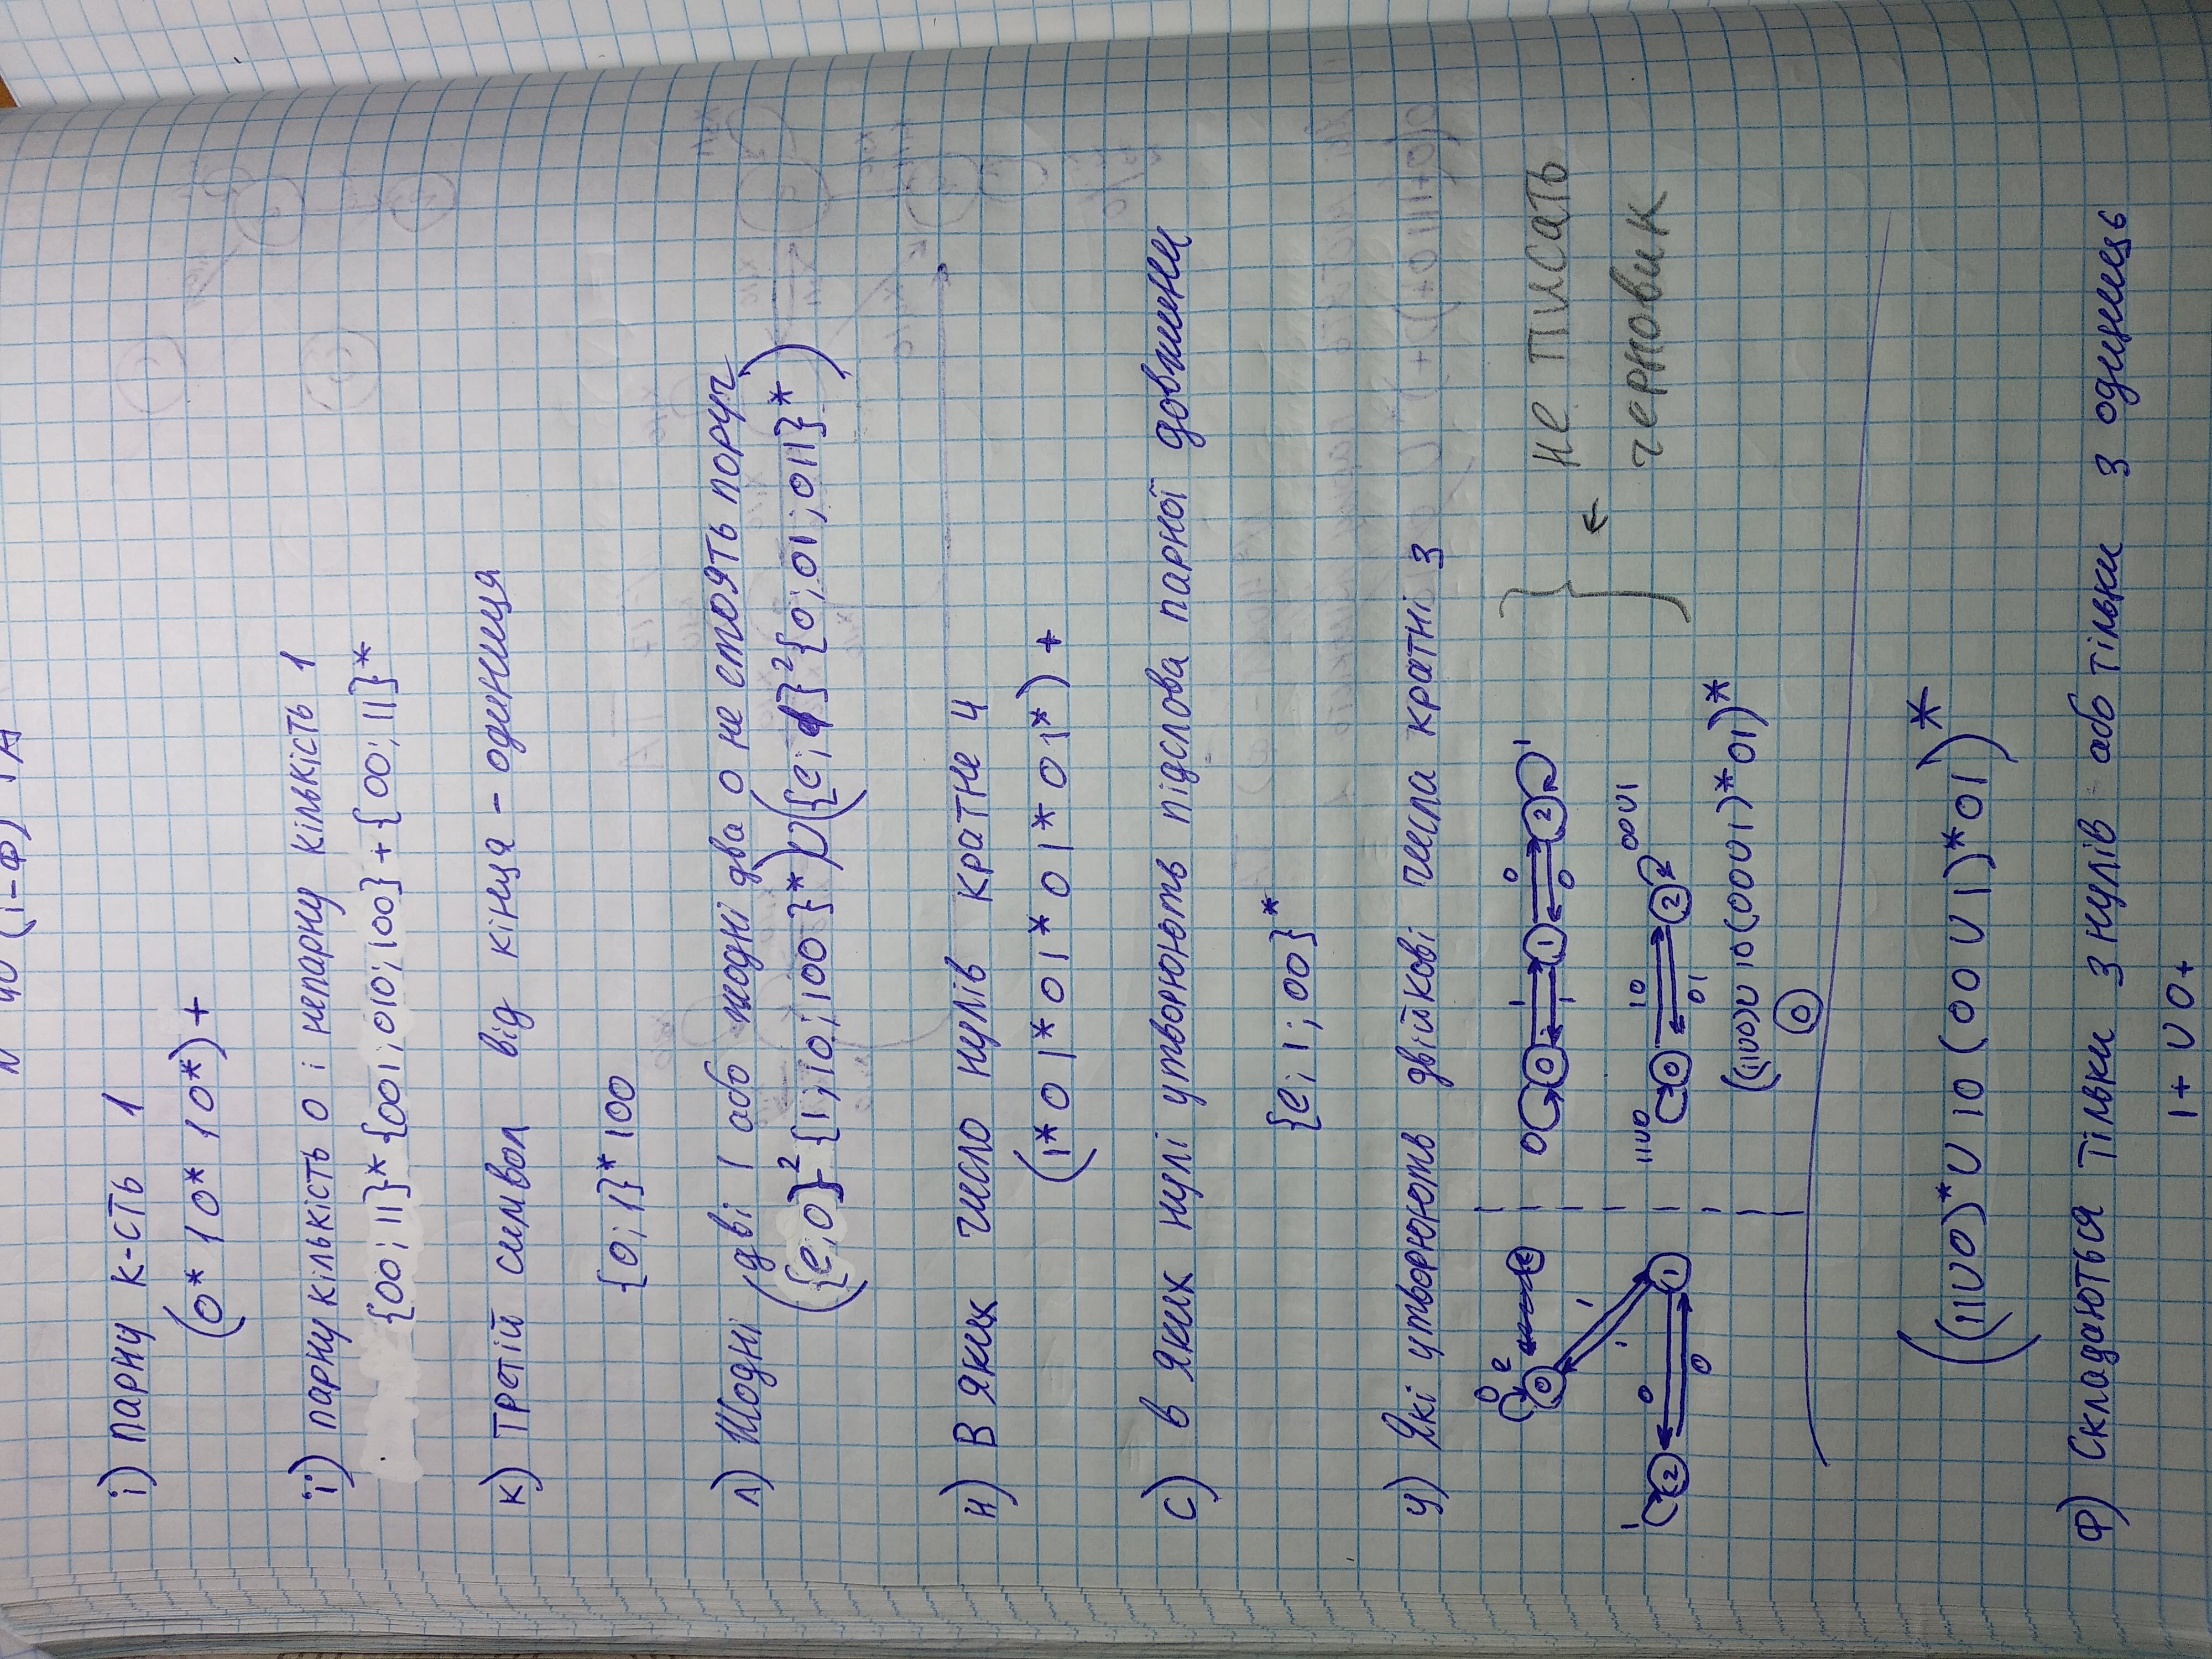 N 40 (і-ф) ТА
і) парну к-сть 1
(0* 1 0* 1 0*)+
ї) парну кількість 0 і непарну кількість 1
{00; 11}* {001; 010; 100} + {00; 11}*
к) Третій символ від кінця - одиниця
{0; 1}* 100
л) Жодні дві 1 або жодні два 0 не стоять поруч
({e; 0}² {1; 10; 100}*) ∪ ({e; 1}² {0; 01; 011}*)
н) В яких число нулів кратне 4
(1* 0 1* 0 1* 0 1* 0 1*) +
с) в яких нулі утворюють підслова парної довжини
{e; 1; 00}*
у) Які утворюють двійкові числа кратні 3
0 e
0
1
1
1 0
2 1
0
0 0 1 1 0 2 1
1 0
11∪0 10 00∪1
0 2
01
((11∪0)∪ 10 (00∪1)* 01)*
0
← не писать
черновик
((11∪0)* ∪ 10 (00 ∪ 1)* 01)*
ф) Складаються тільки з нулів або тільки з одиниць
1+ ∪ 0+